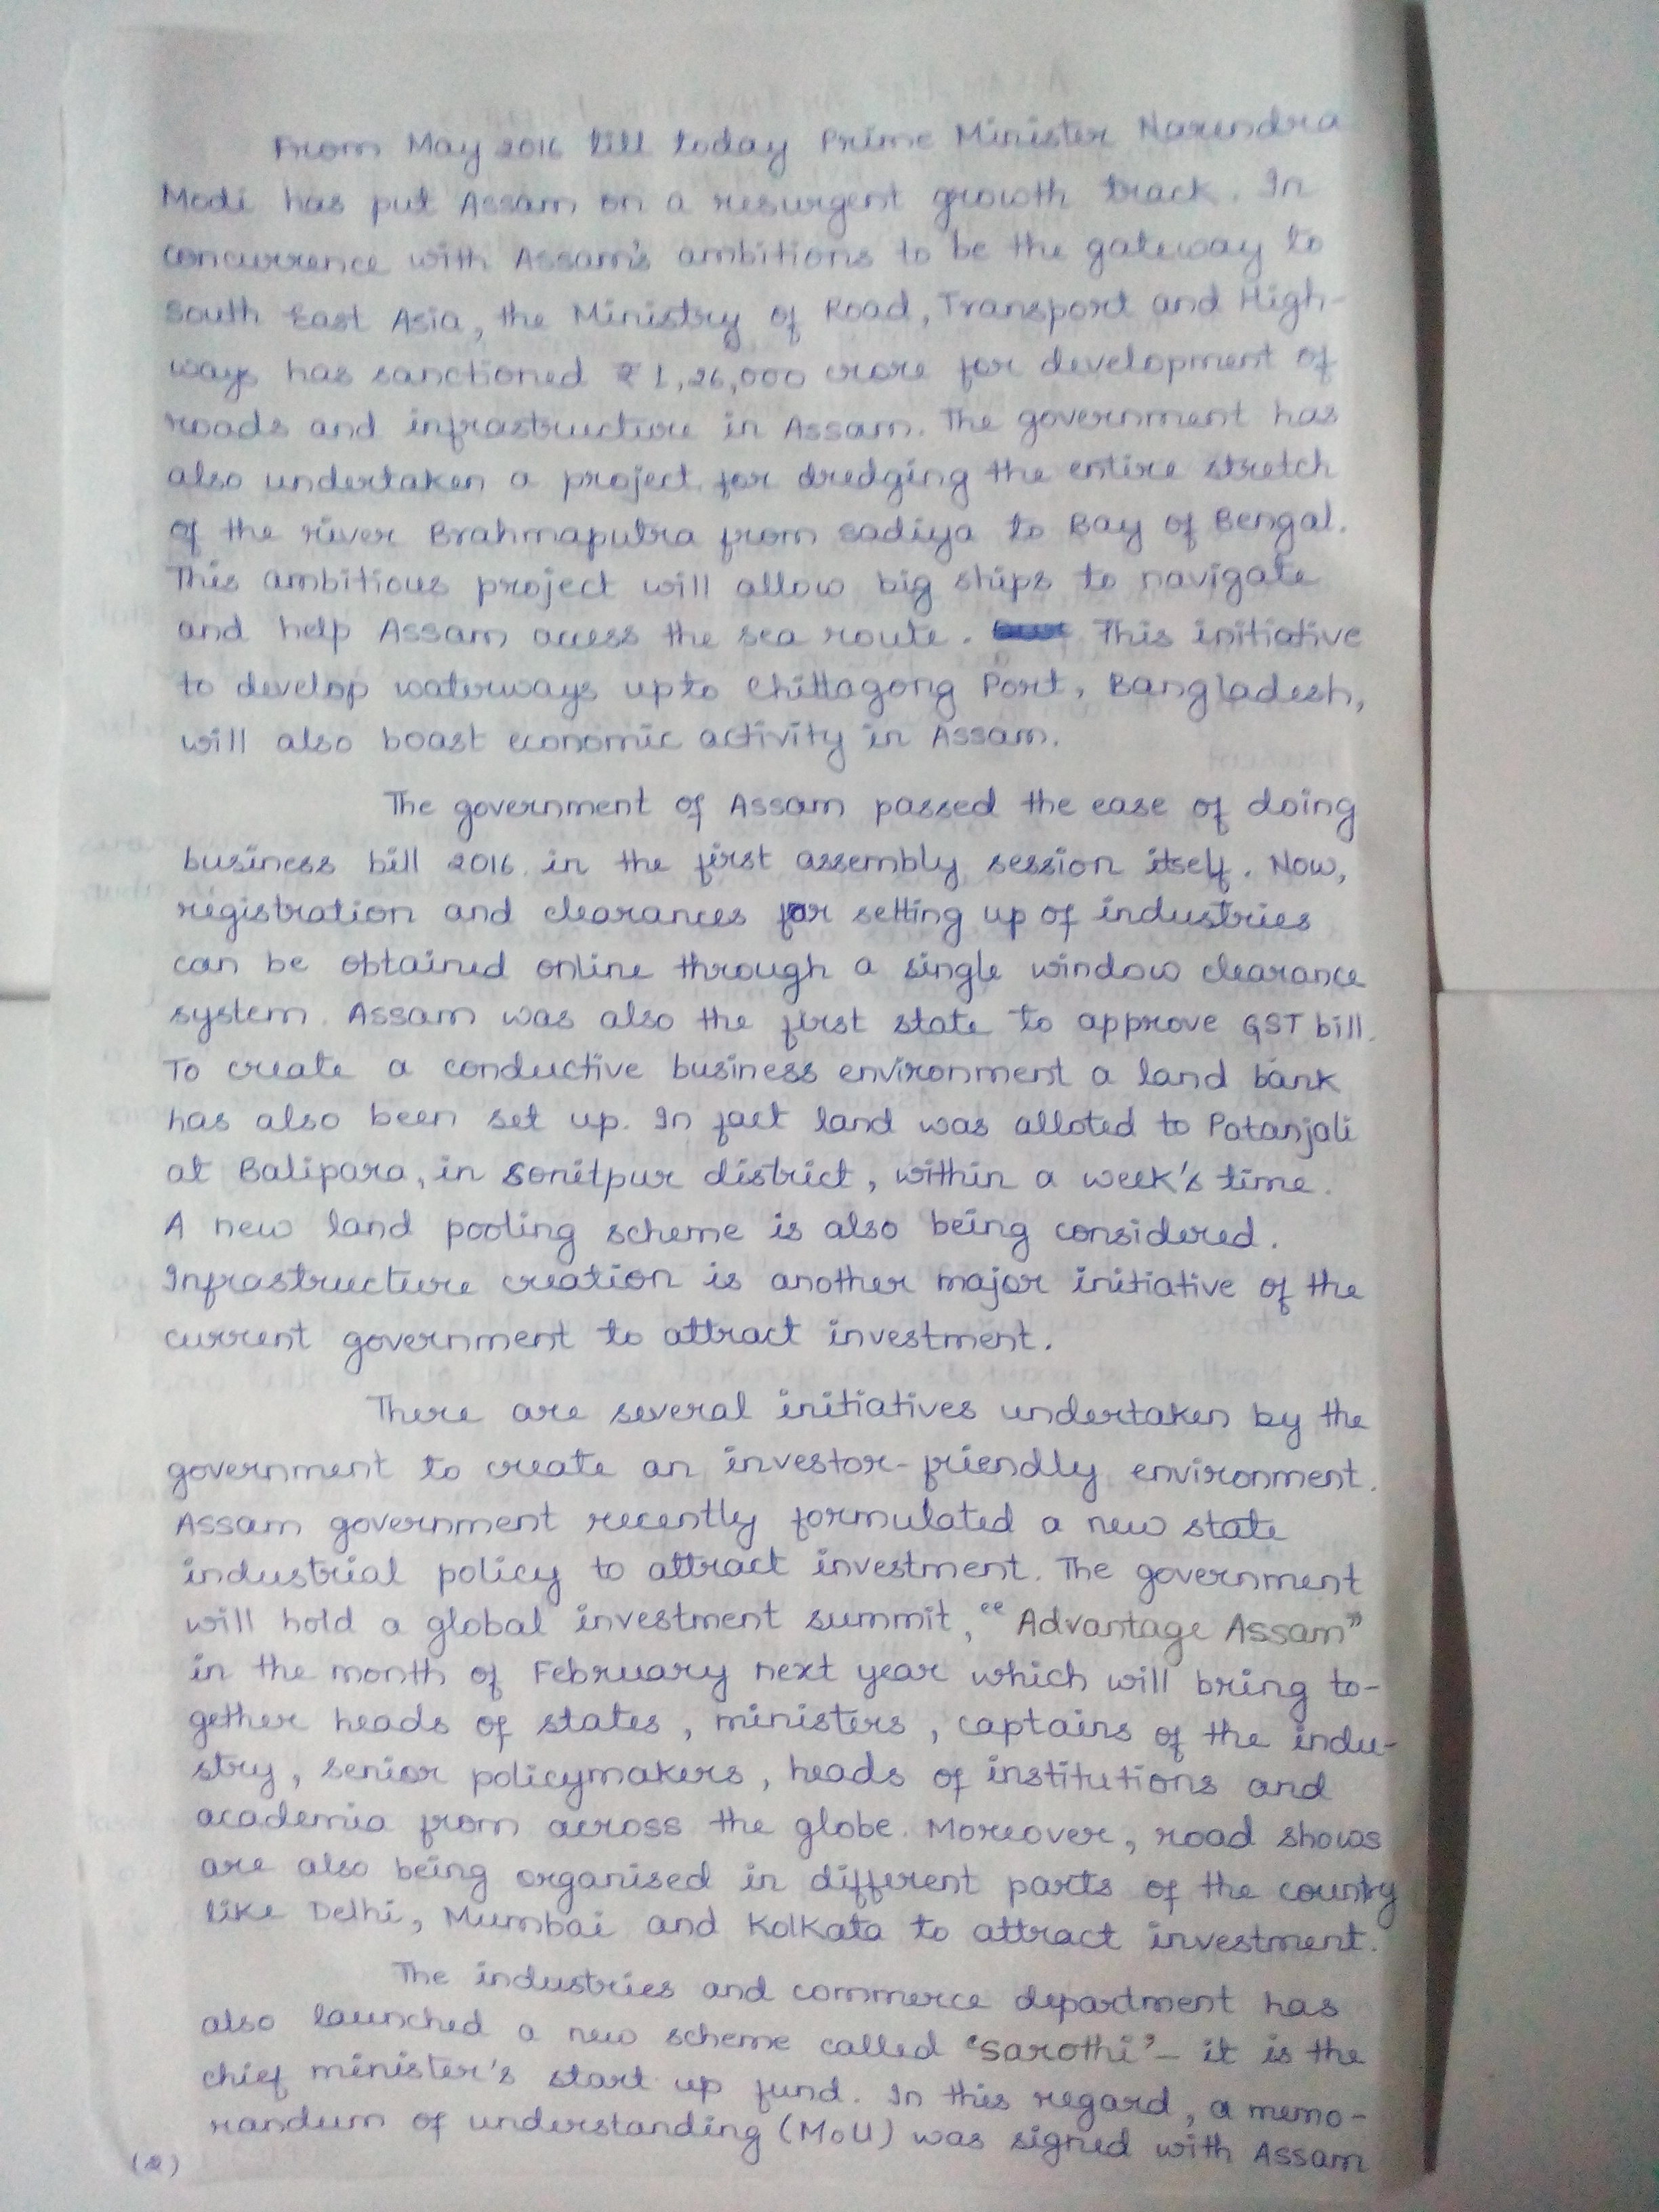 From May 2016 till today Prime Minister Narendra
Modi has put Assam on a resurgent growth track. In
concurrence with Assam's ambitions to be the gateway to
South East Asia, the Ministry of Road, Transport and High-
ways has sanctioned ₹ 1,26,000 crore for development of
roads and infrastructure in Assam. The government has
also undertaken a project for dredging the entire stretch
of the river Brahmaputra from Sadiya to Bay of Bengal.
This ambitious project will allow big ships to navigate
and help Assam access the sea route. This initiative
to develop waterways upto Chittagong Port, Bangladesh,
will also boast economic activity in Assam.
The government of Assam passed the ease of doing
business bill 2016 in the first assembly session itself. Now,
registration and clearances for setting up of industries
can be obtained online through a single window clearance
system. Assam was also the first state to approve GST bill.
To create a conductive business environment a land bank
has also been set up. In fact land was alloted to Patanjali
at Balipara, in Sonitpur district, within a week's time.
A new land pooling scheme is also being considered.
Infrastructure creation is another major initiative of the
current government to attract investment.
There are several initiatives undertaken by the
government to create an investor-friendly environment.
Assam government recently formulated a new state
industrial policy to attract investment. The government
will hold a global investment summit, "Advantage Assam"
in the month of February next year which will bring to-
gether heads of states, ministers, captains of the indu-
stry, senior policymakers, heads of institutions and
academia from across the globe. Moreover, road shows
are also being organised in different parts of the country
like Delhi, Mumbai and Kolkata to attract investment.
The industries and commerce department has
also launched a new scheme called 'Sarothi' - it is the
chief minister's start up fund. In this regard, a memo-
randum of understanding (MoU) was signed with Assam
(2)